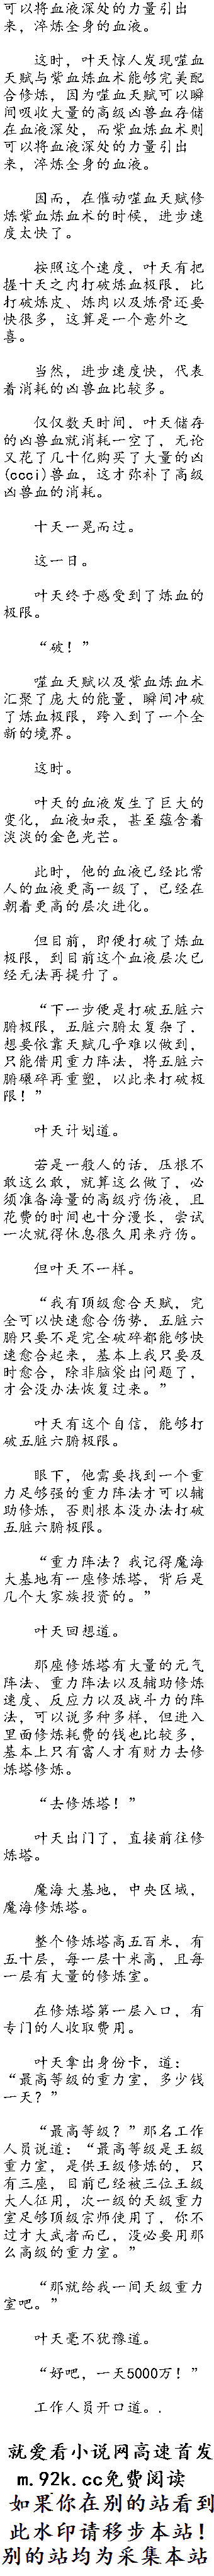 可以将血液深处的力量引出
来，淬炼全身的血液。
这时，叶天惊人发现噬血
天赋与紫血炼血术能够完美配
合修炼，因为噬血天赋可以瞬
间吸收大量的高级凶兽血存储
在血液深处，而紫血炼血术则
可以将血液深处的力量引出
来，淬炼全身的血液。
因而，在催动噬血天赋修
炼紫血炼血术的时候，进步速
度太快了。
按照这个速度，叶天有把
握十天之内打破炼血极限，比
打破炼皮、炼肉以及炼骨还要
快很多，这算是一个意外之
喜。
当然，进步速度快，代表
着消耗的凶兽血比较多。
仅仅数天时间，叶天储存
的凶兽血就消耗一空了，无论
又花了几十亿购买了大量的凶
(ccci)兽血，这才弥补了高级
凶兽血的消耗。
十天一晃而过。
这一日。
叶天终于感受到了炼血的
极限。
“破！”
噬血天赋以及紫血炼血术
汇聚了庞大的能量，瞬间冲破
了炼血极限，跨入到了一个全
新的境界。
这时。
叶天的血液发生了巨大的
变化，血液如汞，甚至蕴含着
淡淡的金色光芒。
此时，他的血液已经比常
人的血液更高一级了，已经在
朝着更高的层次进化。
但目前，即便打破了炼血
极限，到目前这个血液层次已
经无法再提升了。
“下一步便是打破五脏六
腑极限，五脏六腑太复杂了，
想要依靠天赋几乎难以做到，
只能借用重力阵法，将五脏六
腑碾碎再重塑，以此来打破极
限！”
叶天计划道。
若是一般人的话，压根不
敢这么敢，就算这么做了，必
须准备海量的高级疗伤液，且
花费的时间也十分漫长，尝试
一次就得休息很久用来疗伤。
但叶天不一样。
“我有顶级愈合天赋，完
全可以快速愈合伤势，五脏六
腑只要不是完全破碎都能够快
速愈合起来，基本上我只要及
时愈合，除非脑袋出问题了，
才会没办法恢复过来。”
叶天有这个自信，能够打
破五脏六腑极限。
眼下，他需要找到一个重
力足够强的重力阵法才可以辅
助修炼，否则根本没办法打破
五脏六腑极限。
“重力阵法？我记得魔海
大基地有一座修炼塔，背后是
几个大家族投资的。”
叶天回想道。
那座修炼塔有大量的元气
阵法、重力阵法以及辅助修炼
速度、反应力以及战斗力的阵
法，可以说多种多样，但进入
里面修炼耗费的钱也比较多，
基本上只有富人才有财力去修
炼塔修炼。
“去修炼塔！”
叶天出门了，直接前往修
炼塔。
魔海大基地，中央区域，
魔海修炼塔。
整个修炼塔高五百米，有
五十层，每一层十米高，且每
一层有大量的修炼室。
在修炼塔第一层入口，有
专门的人收取费用。
叶天拿出身份卡，道：
“最高等级的重力室，多少钱
一天？”
“最高等级？”那名工作
人员说道：“最高等级是王级
重力室，是供王级修炼的，只
有三座，目前已经被三位王级
大人征用，次一级的天级重力
室足够顶级宗师使用了，你不
过才大武者而已，没必要用那
么高级的重力室。”
“那就给我一间天级重力
室吧。”
叶天毫不犹豫道。
“好吧，一天5000万！”
工作人员开口道。.
就爱看小说网高速首发
m.92k.cc免费阅读
如果你在别的站看到
此水印请移步本站！
别的站均为采集本站